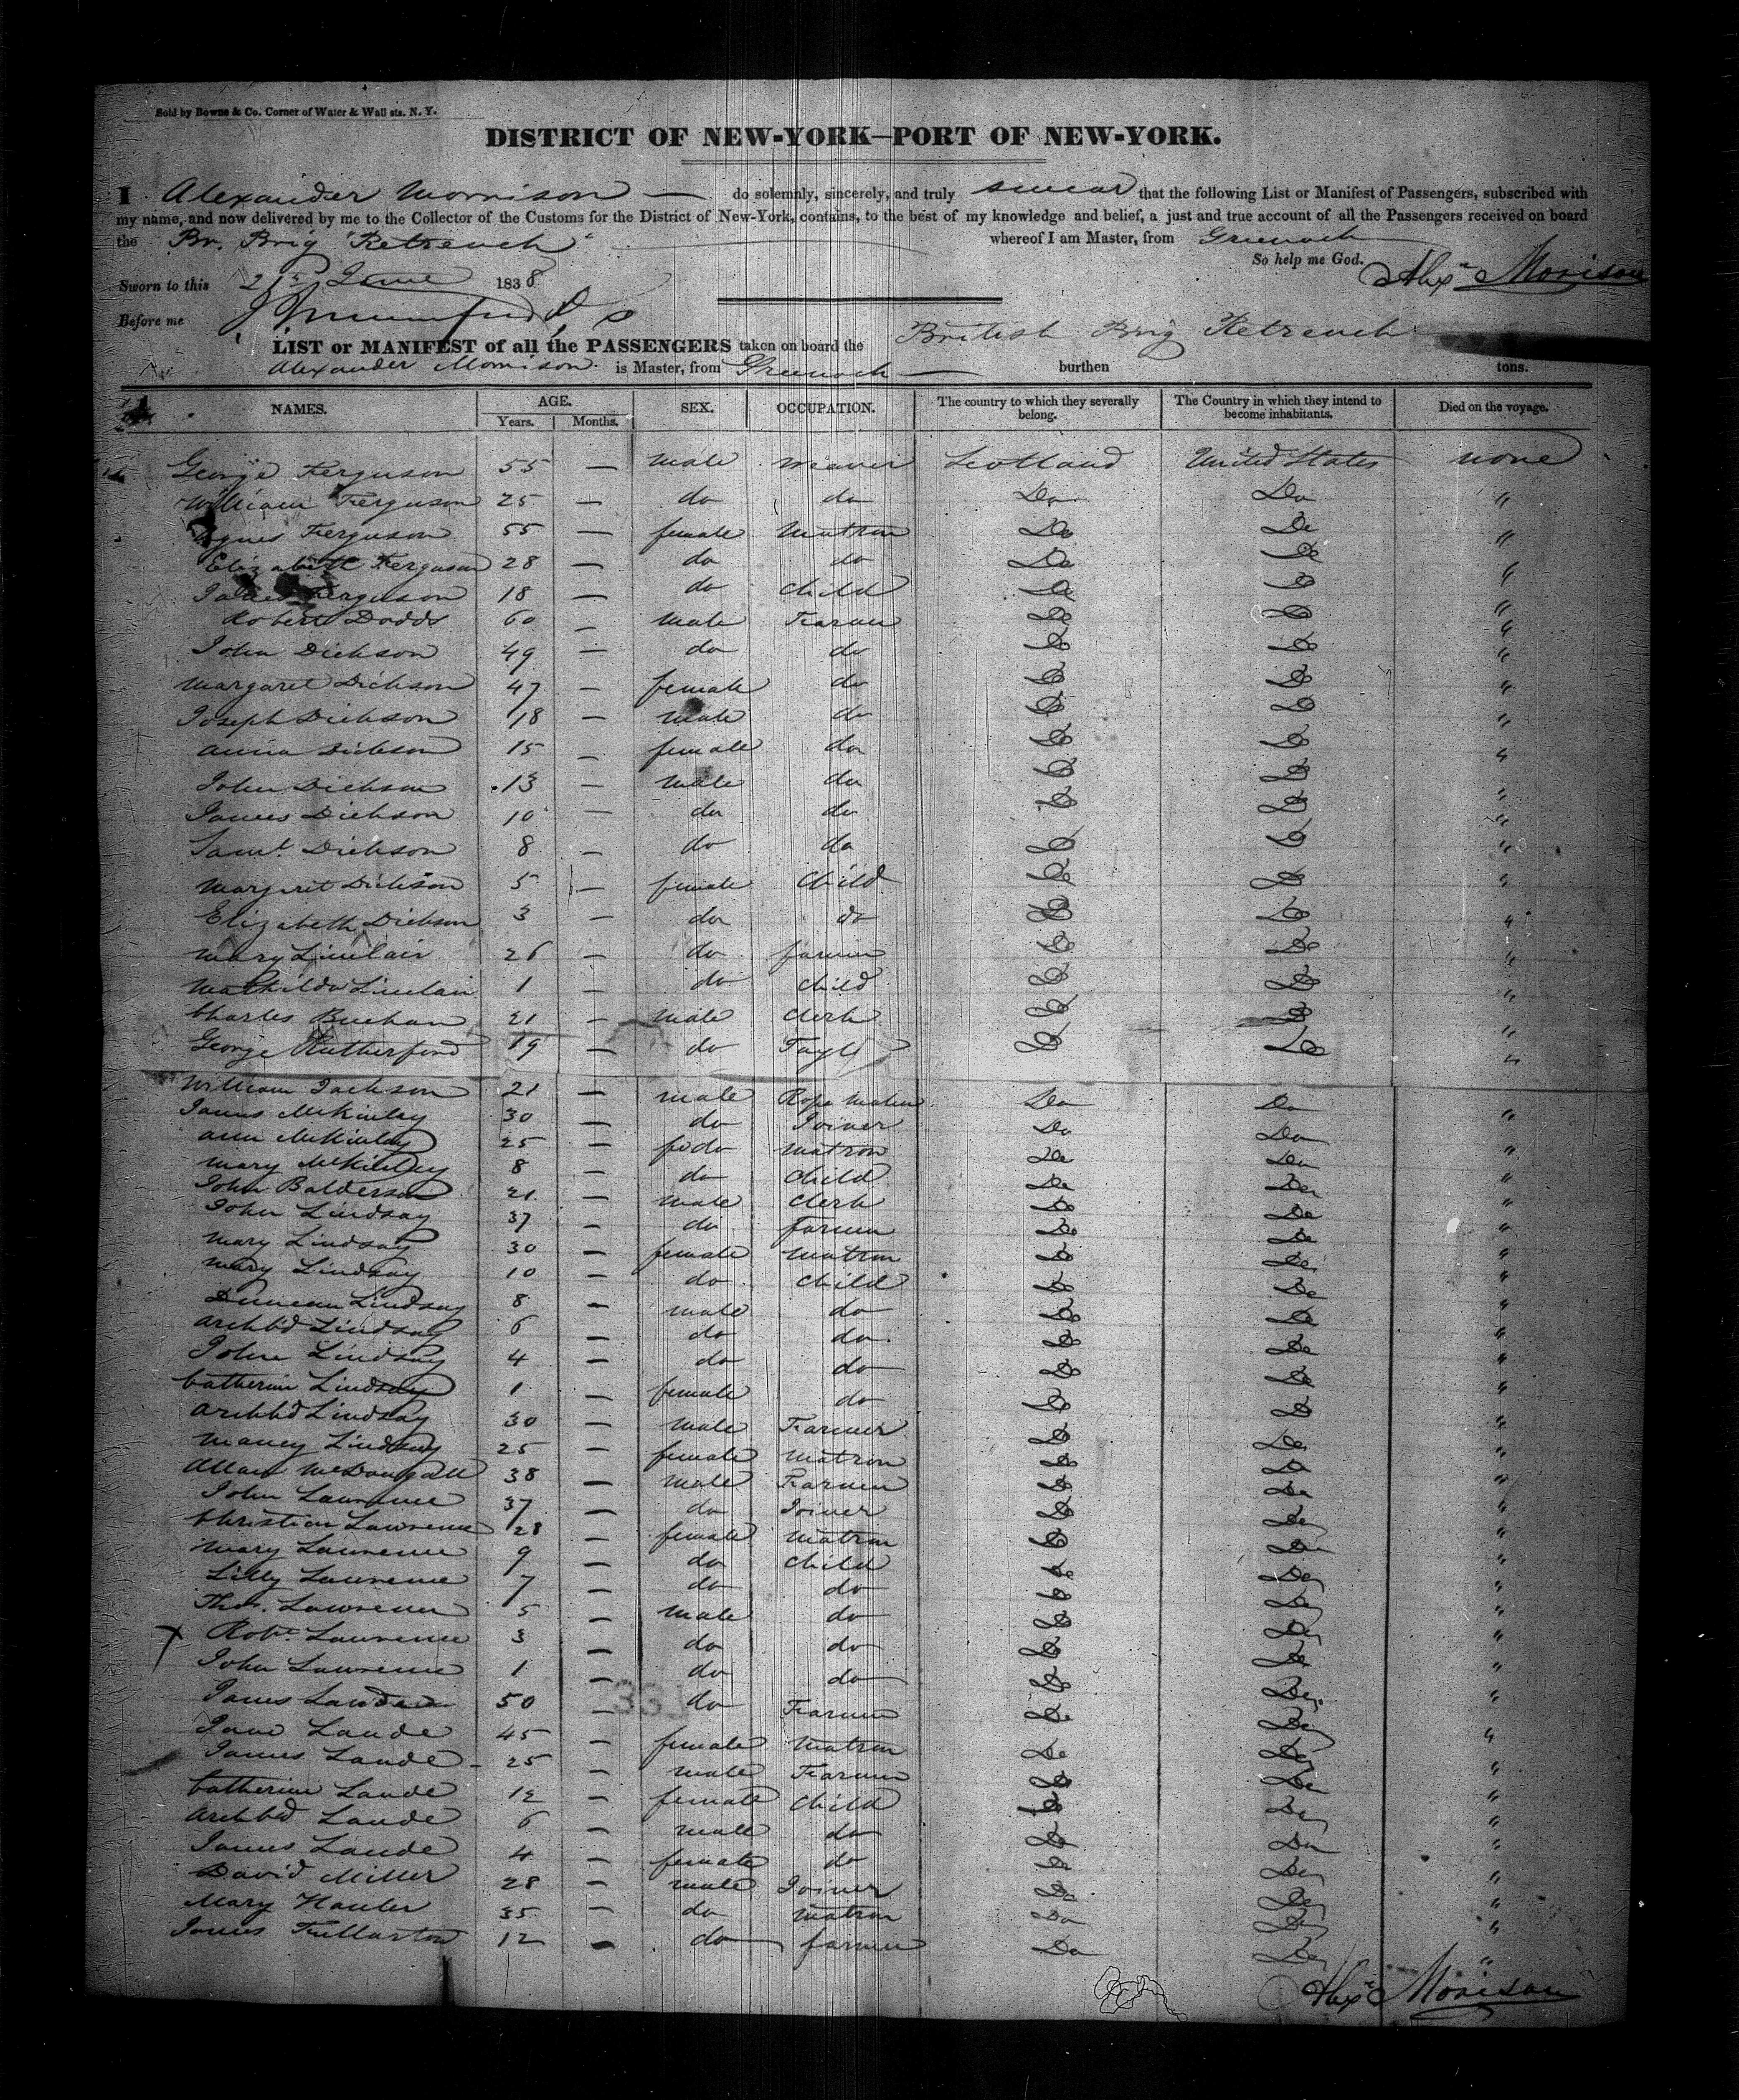 Sold by Bowne & Co. Corner of Water & Wall sts. N. Y.
DISTRICT OF NEW-YORK—PORT OF NEW-YORK.
I Alexander Morrison — do solemnly, sincerely, and truly swear that the following List or Manifest of Passengers, subscribed with
my name, and now delivered by me to the Collector of the Customs for the District of New-York, contains, to the best of my knowledge and belief, a just and true account of all the Passengers received on board
the Br. Brig "Retrench" whereof I am Master, from Greenock
So help me God.
Alexr Morison
Sworn to this 21st June 1838
Before me
LIST or MANIFEST of all the PASSENGERS taken on board the British Brig Retrench
Alexander Morrison is Master, from Greenock — burthen tons.
NAMES. AGE. SEX. OCCUPATION. The country to which they severally belong. The Country in which they intend to become inhabitants. Died on the voyage.
Years. Months.
George Ferguson 55 — male weaver Scotland United States none
William Ferguson 25 — do do Do Do "
Agnes Ferguson 55 — female matron Do Do "
Elizabeth Ferguson 28 — do do Do Do "
Ferguson 18 — do child Do Do "
Robert Dodds 60 — male Farmer Do Do "
John Dickson 49 — do do Do Do "
Margaret Dickson 47 — female do Do Do "
Joseph Dickson 18 — male do Do Do "
Anna Dickson 15 — female do Do Do "
John Dickson 13 — male do Do Do "
James Dickson 10 — do do Do Do "
Saml. Dickson 8 — do do Do Do "
Margaret Dickson 5 — female child Do Do "
Elizabeth Dickson 3 — do do Do Do "
Mary Sinclair 26 — do farmer Do Do "
Mathilda Sinclair 1 — do child Do Do "
Charles Buchan 21 — male clerk Do Do "
George Rutherford 19 — do Do Do "
William Jackson 21 — male Rope maker Do Do "
James McKinley 30 — do Joiner Do Do "
Ann McKinley 25 — fe do matron Do Do "
Mary McKinley 8 — do child Do Do "
John Balderson 21 — male clerk Do Do "
John Lindsay 37 — do farmer Do Do "
Mary Lindsay 30 — female matron Do Do "
Mary Lindsay 10 — do child Do Do "
Duncan Lindsay 8 — male do Do Do "
Archbd Lindsay 6 — do do Do Do "
John Lindsay 4 — do do Do Do "
Catherine Lindsay 1 — female do Do Do "
Archbd Lindsay 30 — male Farmer Do Do "
Lindsay 25 — female matron Do Do "
Allan McDougall 38 — male Farmer Do Do "
John Lawrence 37 — do Joiner Do Do "
Christian Lawrence 28 — female matron Do Do "
Mary Lawrence 9 — do child Do Do "
Lilly Lawrence 7 — do do Do Do "
Thos. Lawrence 5 — male do Do Do "
Robt. Lawrence 3 — do do Do Do "
John Lawrence 1 — do do Do Do "
James 50 — do Farmer Do Do "
Jane Laude 45 — female matron Do Do "
James Laude 25 — male Farmer Do Do "
Catherine Laude 12 — female child Do Do "
Archbd Laude 6 — male do Do Do "
James Laude 4 — female do Do Do "
David Miller 28 — male Joiner Do Do "
Mary 35 — do matron Do Do "
James Fullarton 12 — do farmer Do Do "
Alexr Morison